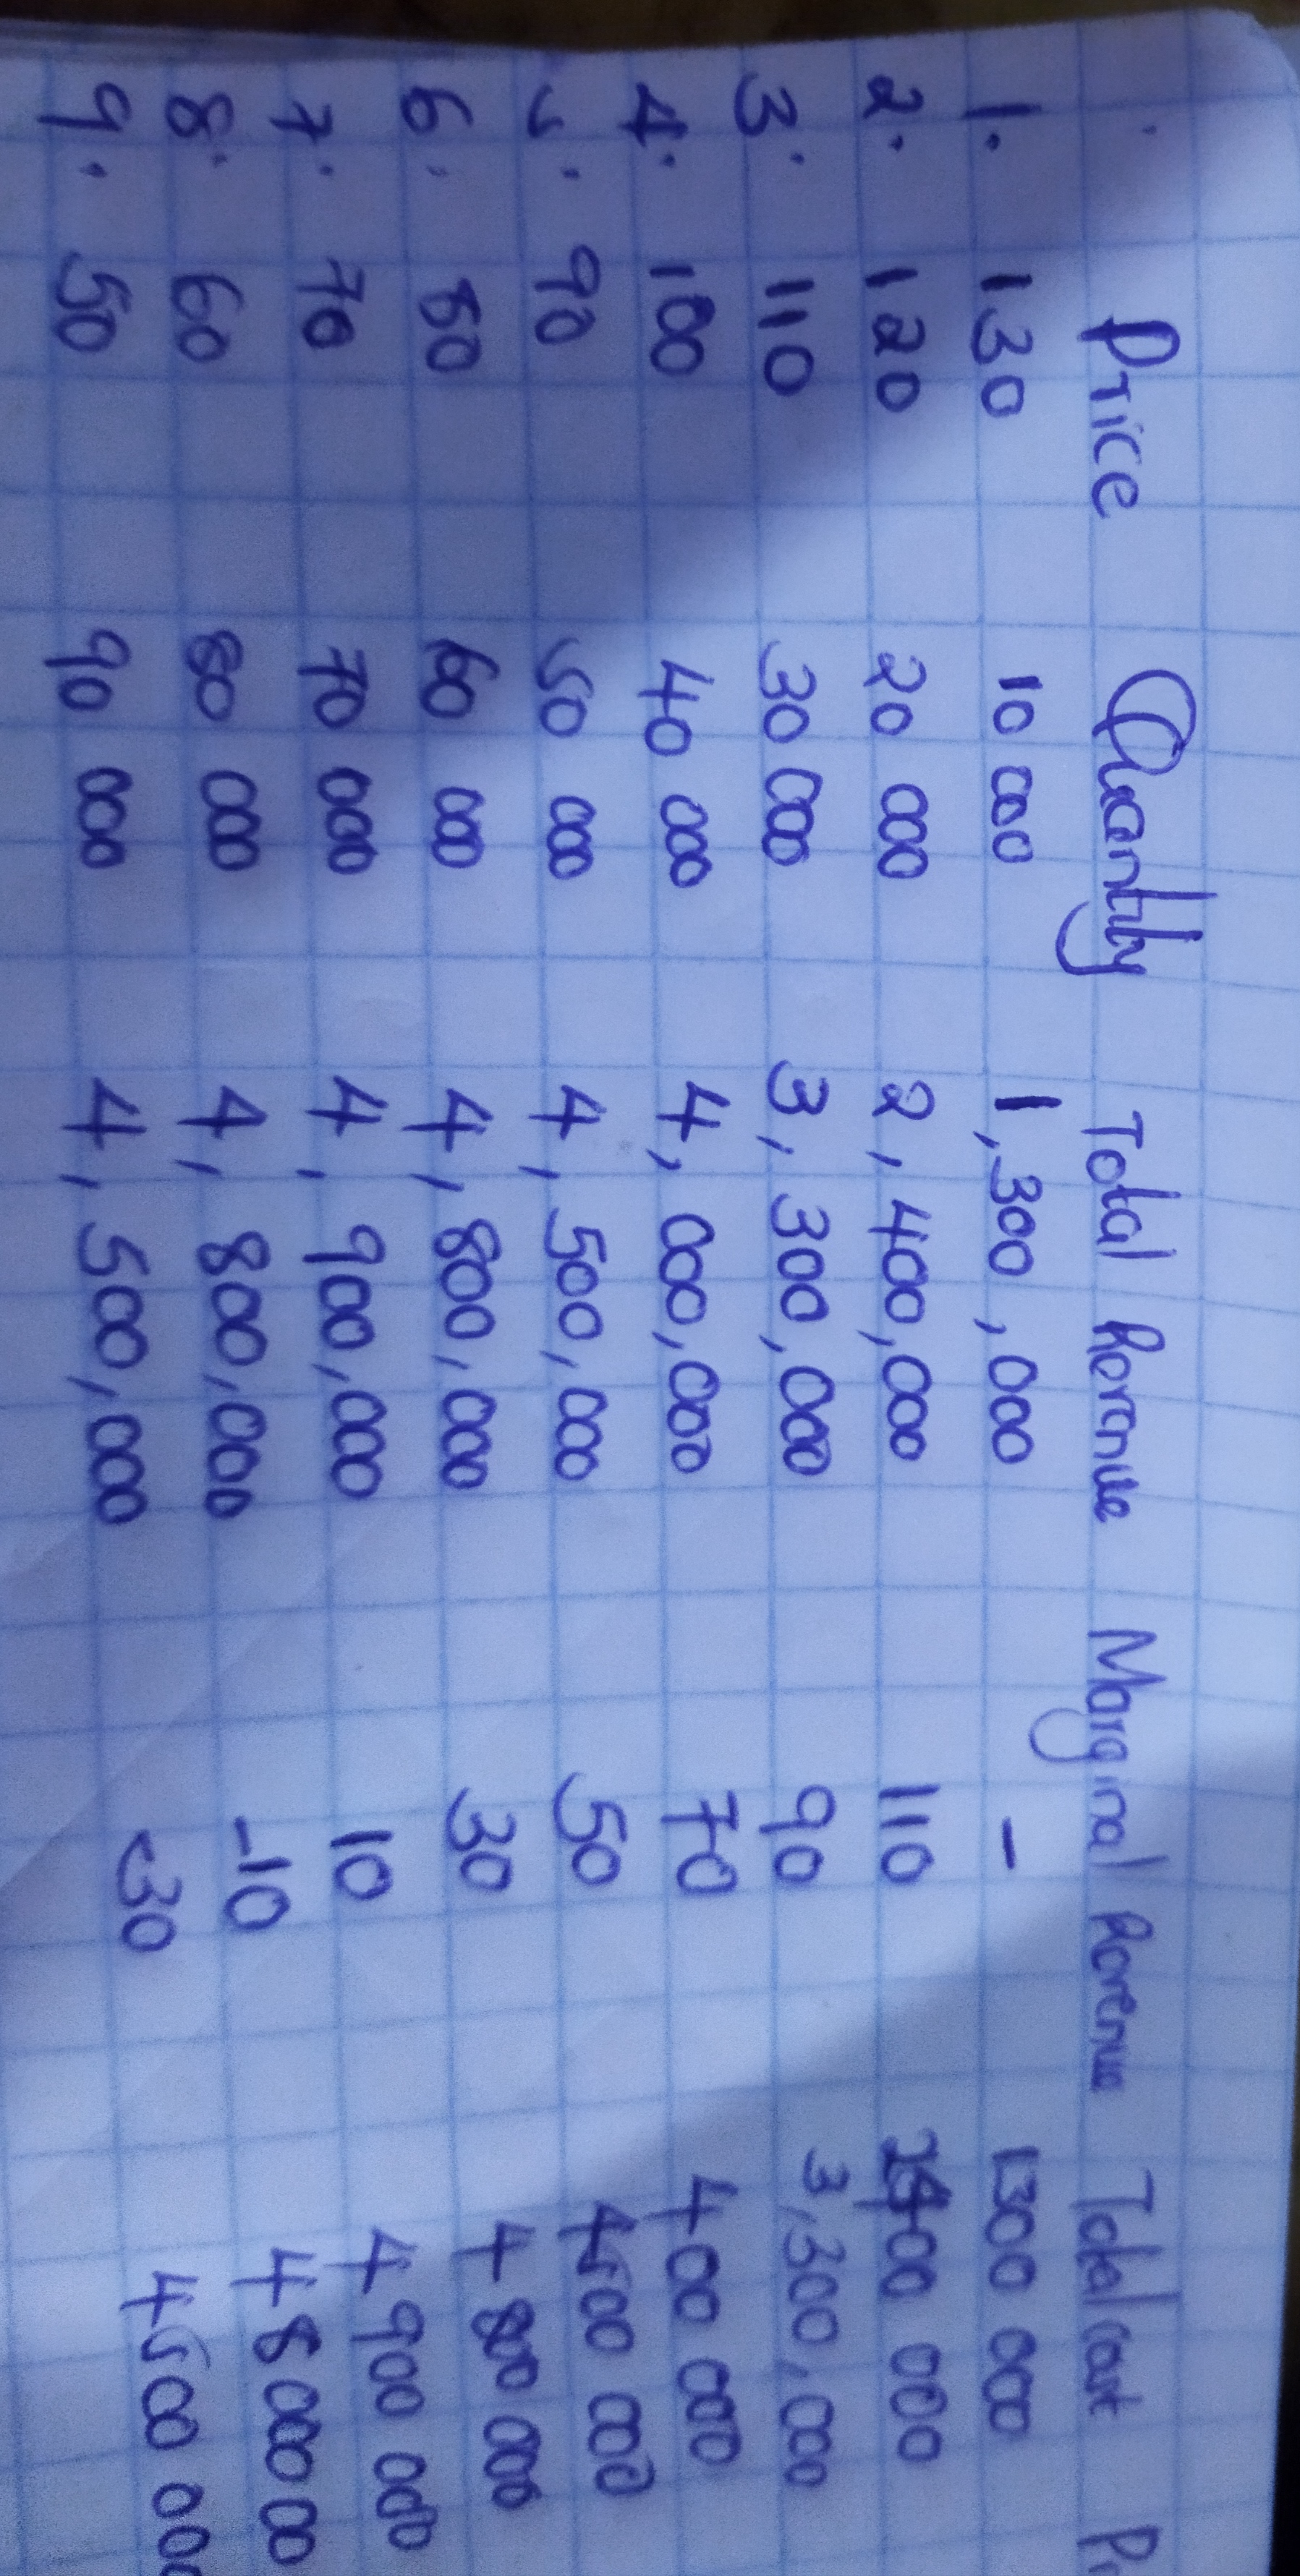 Price Quantity Total Revenue Marginal Revenue Total cost
1. 130 10 000 1,300,000 - 1300 000
2. 120 20 000 2,400,000 110 2400 000
3. 110 30 000 3,300,000 90 3,300,000
4. 100 40 000 4,000,000 70 400 000
5. 90 50 000 4,500,000 50 4500 000
6. 80 60 000 4,800,000 30 4 800 000
7. 70 70 000 4,900,000 10 4 900 000
8. 60 80 000 4,800,000 -10 4 8000 00
9. 50 90 000 4,500,000 -30 4500 00